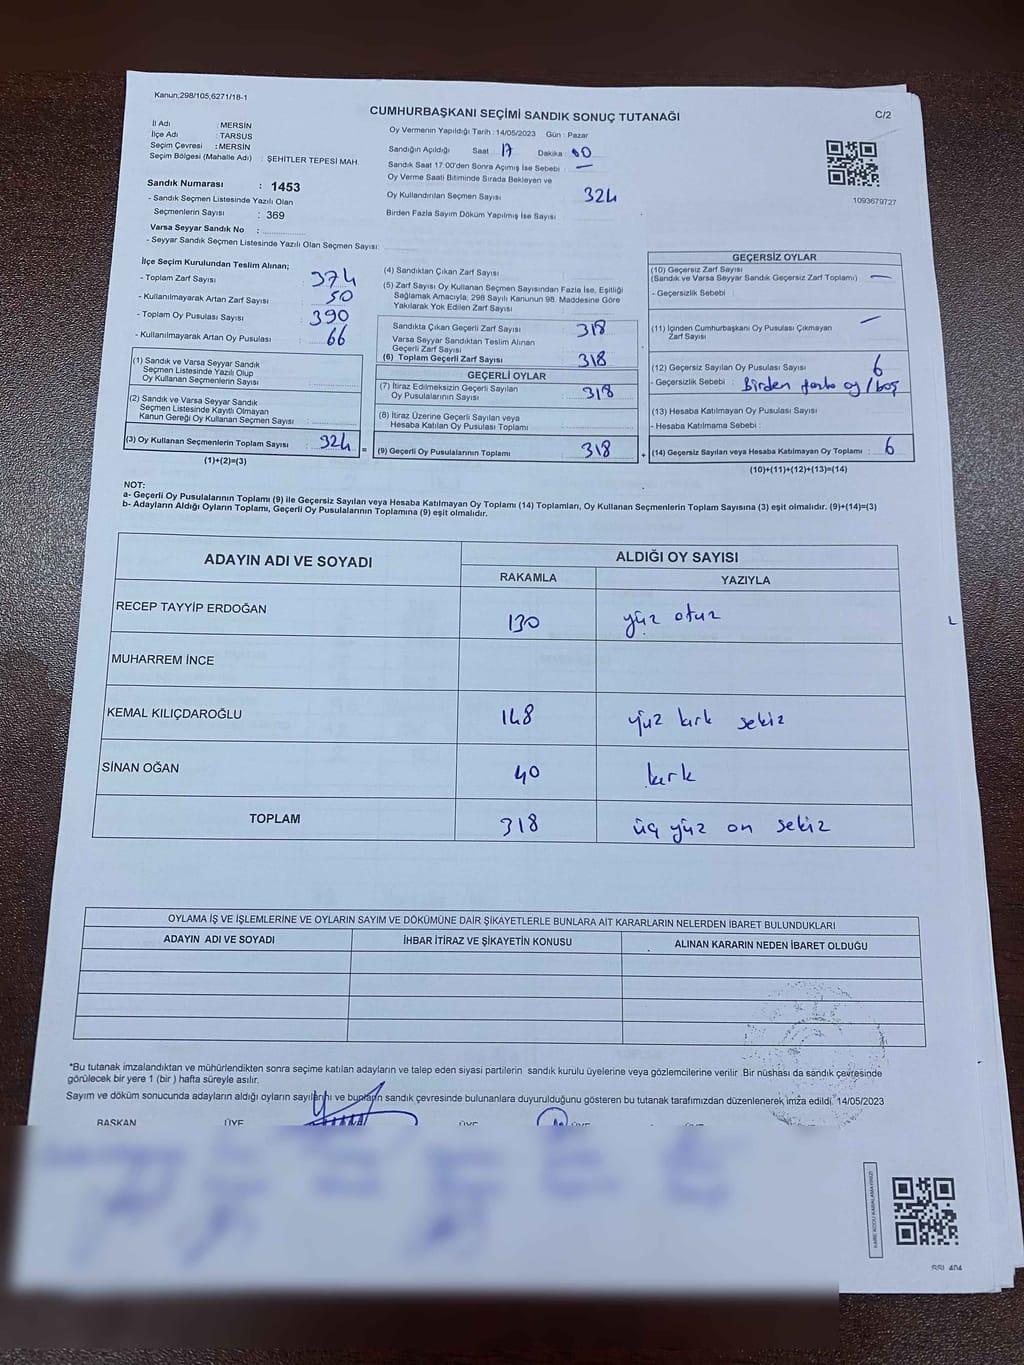 Kanun,298/105,6271/18-1
CUMHURBAŞKANI SEÇİMİ SANDIK SONUÇ TUTANAĞI
C/2
İl Adı : MERSİN
İlçe Adı : TARSUS
Seçim Çevresi : MERSİN
Seçim Bölgesi (Mahalle Adı) : ŞEHİTLER TEPESİ MAH.
Oy Vermenin Yapıldığı Tarih : 14/05/2023 Gün : Pazar
Sandığın Açıldığı Saat 17 Dakika 00
Sandık Saat 17:00'den Sonra Açımış İse Sebebi : —
Oy Verme Saati Bitiminde Sırada Bekleyen ve
Oy Kullandırılan Seçmen Sayısı 324
Birden Fazla Sayım Döküm Yapılmış İse Sayısı
1093679727
Sandık Numarası : 1453
- Sandık Seçmen Listesinde Yazılı Olan
Seçmenlerin Sayısı : 369
Varsa Seyyar Sandık No :
- Seyyar Sandık Seçmen Listesinde Yazılı Olan Seçmen Sayısı:
İlçe Seçim Kurulundan Teslim Alınan;
- Toplam Zarf Sayısı : 374
- Kullanılmayarak Artan Zarf Sayısı : 50
- Toplam Oy Pusulası Sayısı : 390
- Kullanılmayarak Artan Oy Pusulası : 66
(1) Sandık ve Varsa Seyyar Sandık
Seçmen Listesinde Yazılı Olup
Oy Kullanan Seçmenlerin Sayısı :
(2) Sandık ve Varsa Seyyar Sandık
Seçmen Listesinde Kayıtlı Olmayan
Kanun Gereği Oy Kullanan Seçmen Sayısı :
(3) Oy Kullanan Seçmenlerin Toplam Sayısı : 324
(1)+(2)=(3)
(4) Sandıktan Çıkan Zarf Sayısı :
(5) Zarf Sayısı Oy Kullanan Seçmen Sayısından Fazla İse, Eşitliği
Sağlamak Amacıyla; 298 Sayılı Kanunun 98. Maddesine Göre
Yakılarak Yok Edilen Zarf Sayısı :
Sandıkta Çıkan Geçerli Zarf Sayısı : 318
Varsa Seyyar Sandıktan Teslim Alınan
Geçerli Zarf Sayısı
(6) Toplam Geçerli Zarf Sayısı : 318
GEÇERLİ OYLAR
(7) İtiraz Edilmeksizin Geçerli Sayılan
Oy Pusulasılarının Sayısı : 318
(8) İtiraz Üzerine Geçerli Sayılan veya
Hesaba Katılan Oy Pusulası Toplamı :
(9) Geçerli Oy Pusulalarının Toplamı : 318
GEÇERSİZ OYLAR
(10) Geçersiz Zarf Sayısı
(Sandık ve Varsa Seyyar Sandık Geçersiz Zarf Toplamı) : —
- Geçersizlik Sebebi :
(11) İçinden Cumhurbaşkanı Oy Pusulası Çıkmayan
Zarf Sayısı : —
(12) Geçersiz Sayılan Oy Pusulası Sayısı : 6
- Geçersizlik Sebebi : Birden fazla oy / boş
(13) Hesaba Katılmayan Oy Pusulası Sayısı :
- Hesaba Katılmama Sebebi :
(14) Geçersiz Sayılan veya Hesaba Katılmayan Oy Toplamı : 6
(10)+(11)+(12)+(13)=(14)
NOT:
a- Geçerli Oy Pusulalarının Toplamı (9) ile Geçersiz Sayılan veya Hesaba Katılmayan Oy Toplamı (14) Toplamları, Oy Kullanan Seçmenlerin Toplam Sayısına (3) eşit olmalıdır. (9)+(14)=(3)
b- Adayların Aldığı Oyların Toplamı, Geçerli Oy Pusulalarının Toplamına (9) eşit olmalıdır.
ADAYIN ADI VE SOYADI
ALDIĞI OY SAYISI
RAKAMLA YAZIYLA
RECEP TAYYİP ERDOĞAN 130 yüz otuz
MUHARREM İNCE
KEMAL KILIÇDAROĞLU 148 yüz kırk sekiz
SİNAN OĞAN 40 kırk
TOPLAM 318 üç yüz on sekiz
OYLAMA İŞ VE İŞLEMLERİNE VE OYLARIN SAYIM VE DÖKÜMÜNE DAİR ŞİKAYETLERLE BUNLARA AİT KARARLARIN NELERDEN İBARET BULUNDUKLARI
ADAYIN ADI VE SOYADI İHBAR İTİRAZ VE ŞİKAYETİN KONUSU ALINAN KARARIN NEDEN İBARET OLDUĞU
*Bu tutanak imzalandıktan ve mühürlendikten sonra seçime katılan adayların ve talep eden siyasi partilerin sandık kurulu üyelerine veya gözlemcilerine verilir. Bir nüshası da sandık çevresinde
görülecek bir yere 1 (bir ) hafta süreyle asılır.
Sayım ve döküm sonucunda adayların aldığı oyların sayılarını ve bunların sandık çevresinde bulunanlara duyurulduğunu gösteren bu tutanak tarafımızdan düzenlenerek imza edildi. 14/05/2023
BAŞKAN ÜYE ÜYE ÜYE